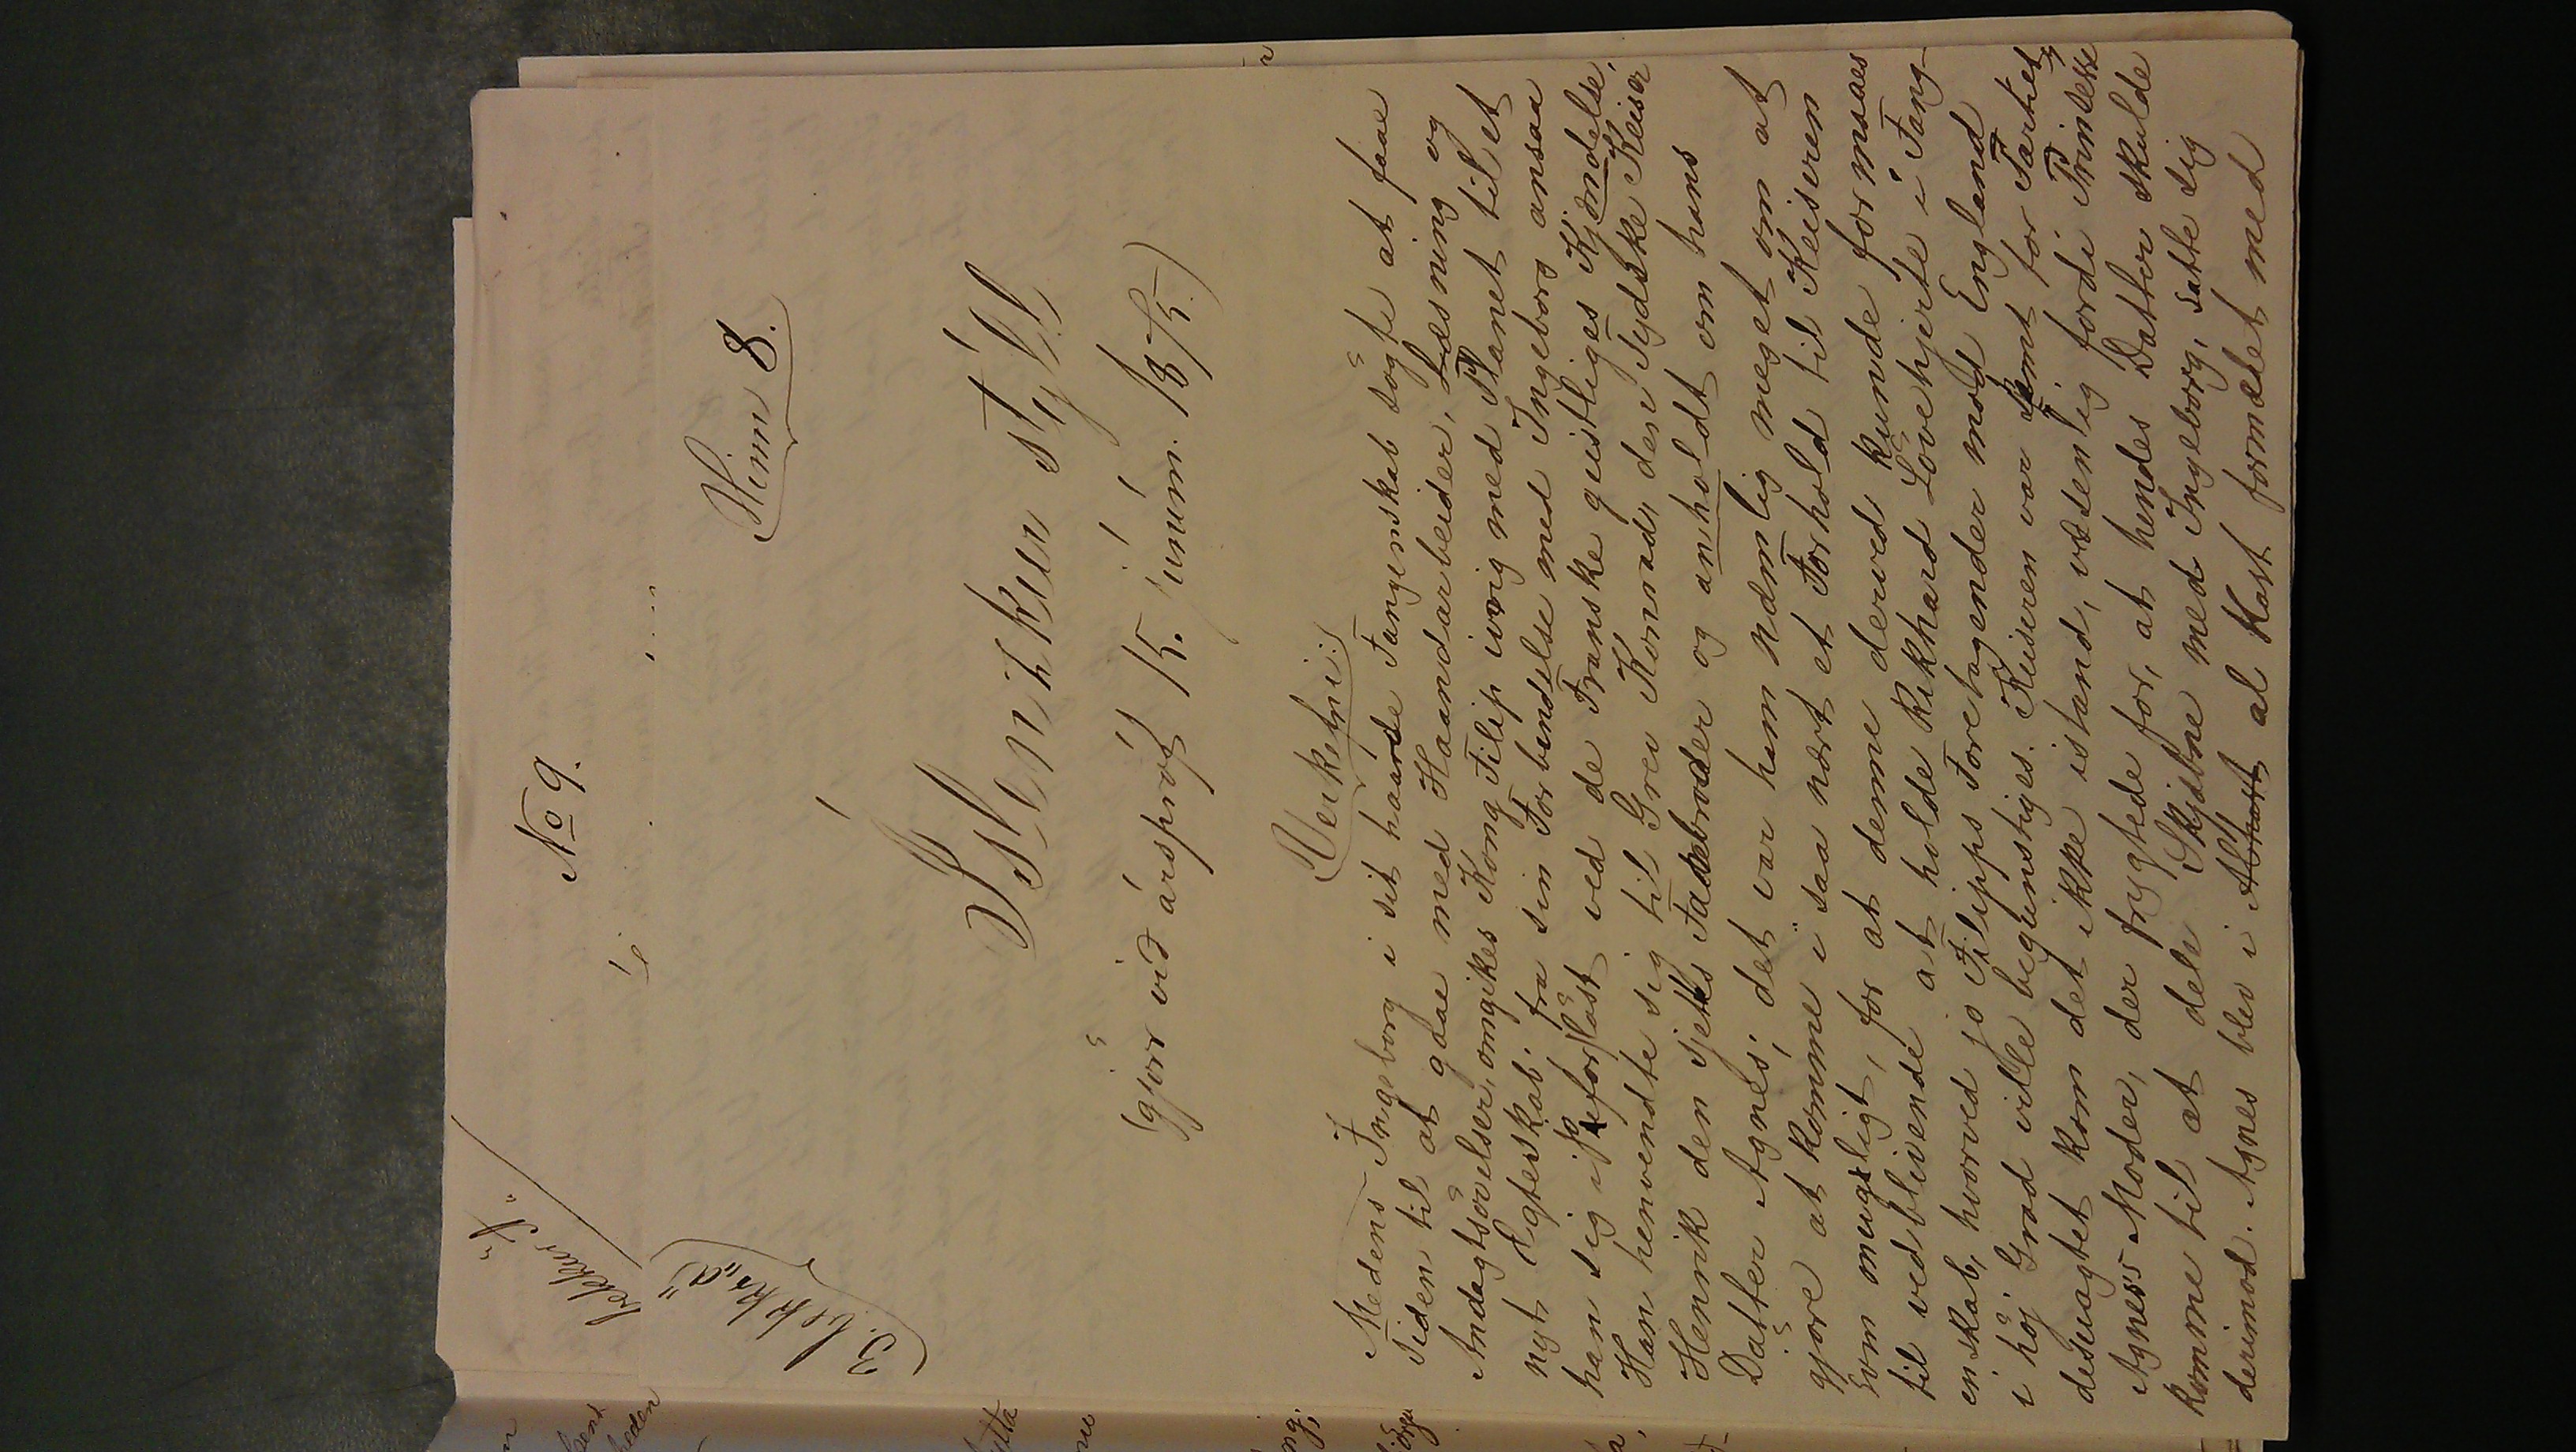 bekkur "A"
3. bekkr "a"
No 9.
Einn 8.
Íslenzkur stýll
(gjörr við árspróf 15. júním. 1875.)
Verkefni:
Medens Ingeborg i sit haarde Fangenskab sögte at faae
Tiden til at gaae med Haandarbeider, Læsning og
Andagtsövelser, omgikes Kong Filip ivrig med Planet til et
nyt Ægteskab; fra sin Forbindelse med Ingeborg ansaa
han sig jo forlöst ved de Franske geistliges Kjendelse.
Han henvendte sig til Grev Konrad, den Tydske Keiser
Henrik den sjettes Fadebroder og anholdt om hans
Datter Agnes; det var ham nemlig meget om at
gjöre at komme i saa nært et Forhold til Keiseren
som mueligt, for at denne derved kunde formaaes
til vedblivende at holde Rikhard Lövehjerte i Fang-
enskab, hvorved jo Filipps Foretagender mod England
i höj Grad ville begunstiges. Keiseren var stemt for Partiet,
desuagtet kom det ikke istand, væsenlig fordi Prinsesse
Agnes's Moder, der frygtede for, at hendes Datter skulde
komme til at dele Skjæbne med Ingeborg, satte sig
derimod. Agnes blev i al Hast formælet med